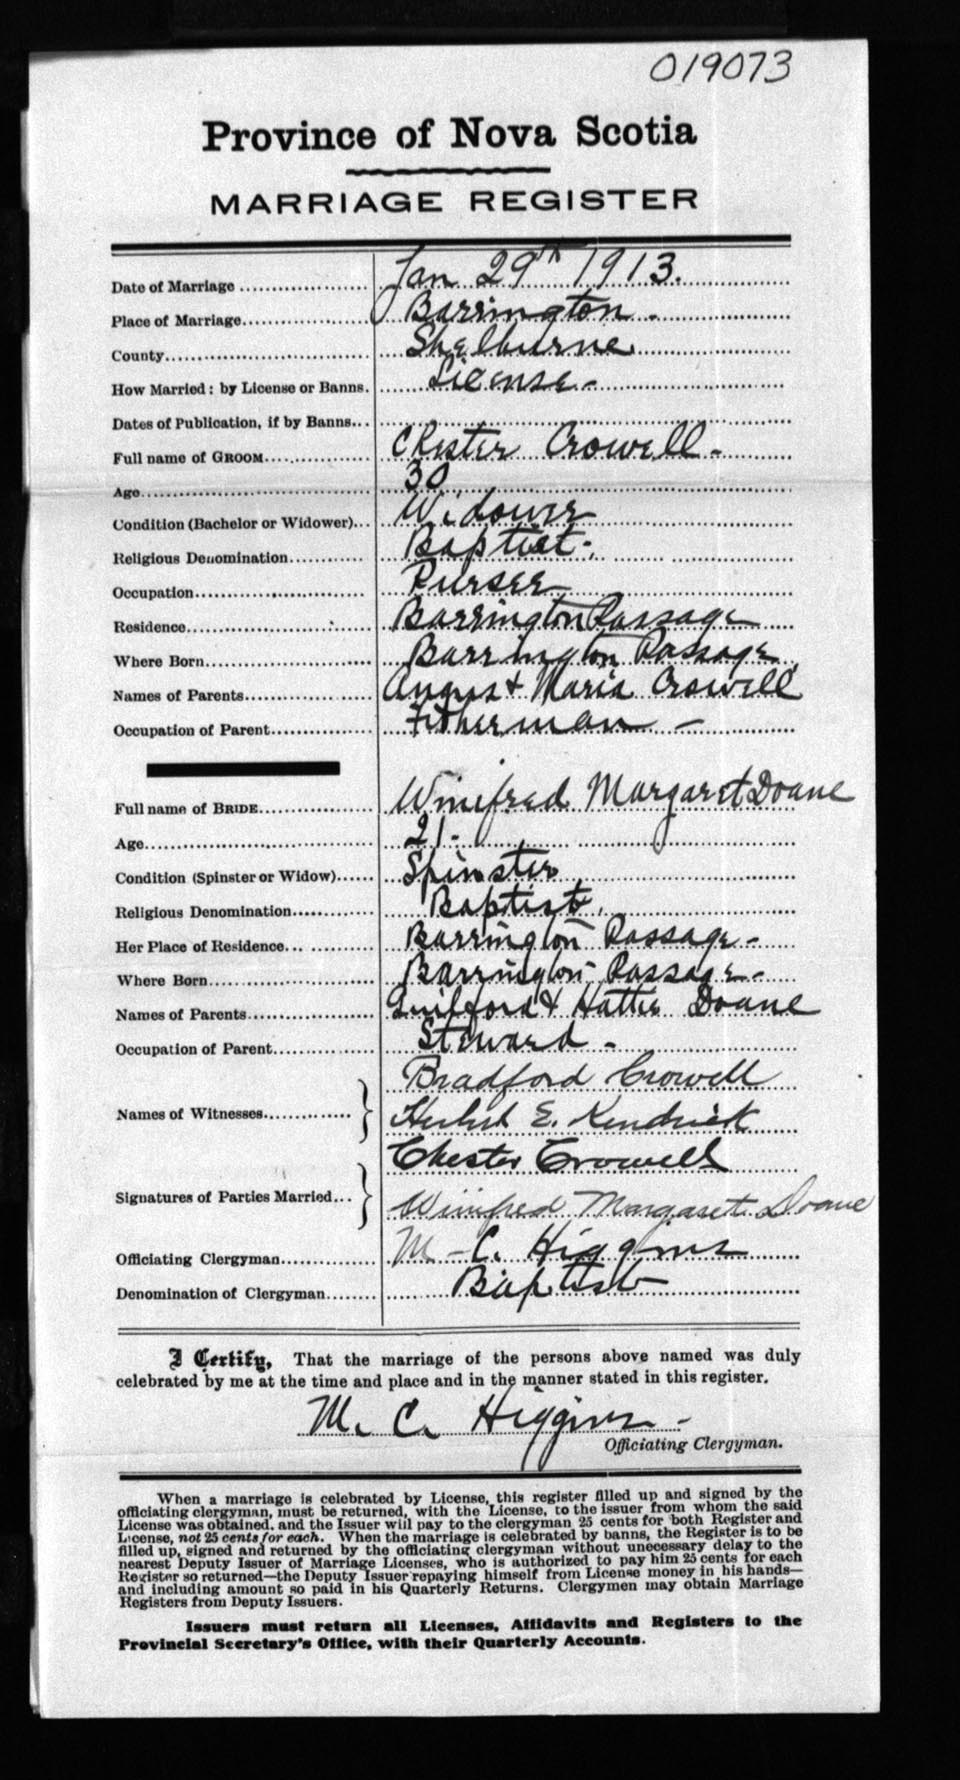 019073
Province of Nova Scotia
MARRIAGE REGISTER
Date of Marriage Jan 29th 1913.
Place of Marriage Barrington.
County Shelburne
How Married: by License or Banns. License-
Dates of Publication, if by Banns
Full name of GROOM Chester Crowell-
Age 30
Condition (Bachelor or Widower) Widower
Religious Denomination Baptist-
Occupation Purser
Residence Barrington Passage
Where Born Barrington Passage
Names of Parents Angus & Maria Crowell
Occupation of Parent Fisherman-
Full name of BRIDE Winifred Margaret Doane
Age 21-
Condition (Spinster or Widow) Spinster
Religious Denomination Baptist
Her Place of Residence Barrington Passage-
Where Born Barrington Passage-
Names of Parents Guilford & Hattie Doane
Occupation of Parent Steward-
Bradford Crowell
Names of Witnesses
Herbert E. Kendrick
Chester Crowell
Signatures of Parties Married
Winifred Margaret Doane
Officiating Clergyman M-C. Higgins
Denomination of Clergyman Baptist
I Certify, That the marriage of the persons above named was duly
celebrated by me at the time and place and in the manner stated in this register.
M. C. Higgins-
Officiating Clergyman.
When a marriage is celebrated by License, this register filled up and signed by the
officiating clergyman, must be returned, with the License, to the issuer from whom the said
License was obtained, and the Issuer will pay to the clergyman 25 cents for both Register and
License, not 25 cents for each. When the marriage is celebrated by banns, the Register is to be
filled up, signed and returned by the officiating clergyman without unnecessary delay to the
nearest Deputy Issuer of Marriage Licenses, who is authorized to pay him 25 cents for each
Register so returned—the Deputy Issuer repaying himself from License money in his hands—
and including amount so paid in his Quarterly Returns. Clergymen may obtain Marriage
Registers from Deputy Issuers.
Issuers must return all Licenses, Affidavits and Registers to the
Provincial Secretary's Office, with their Quarterly Accounts.